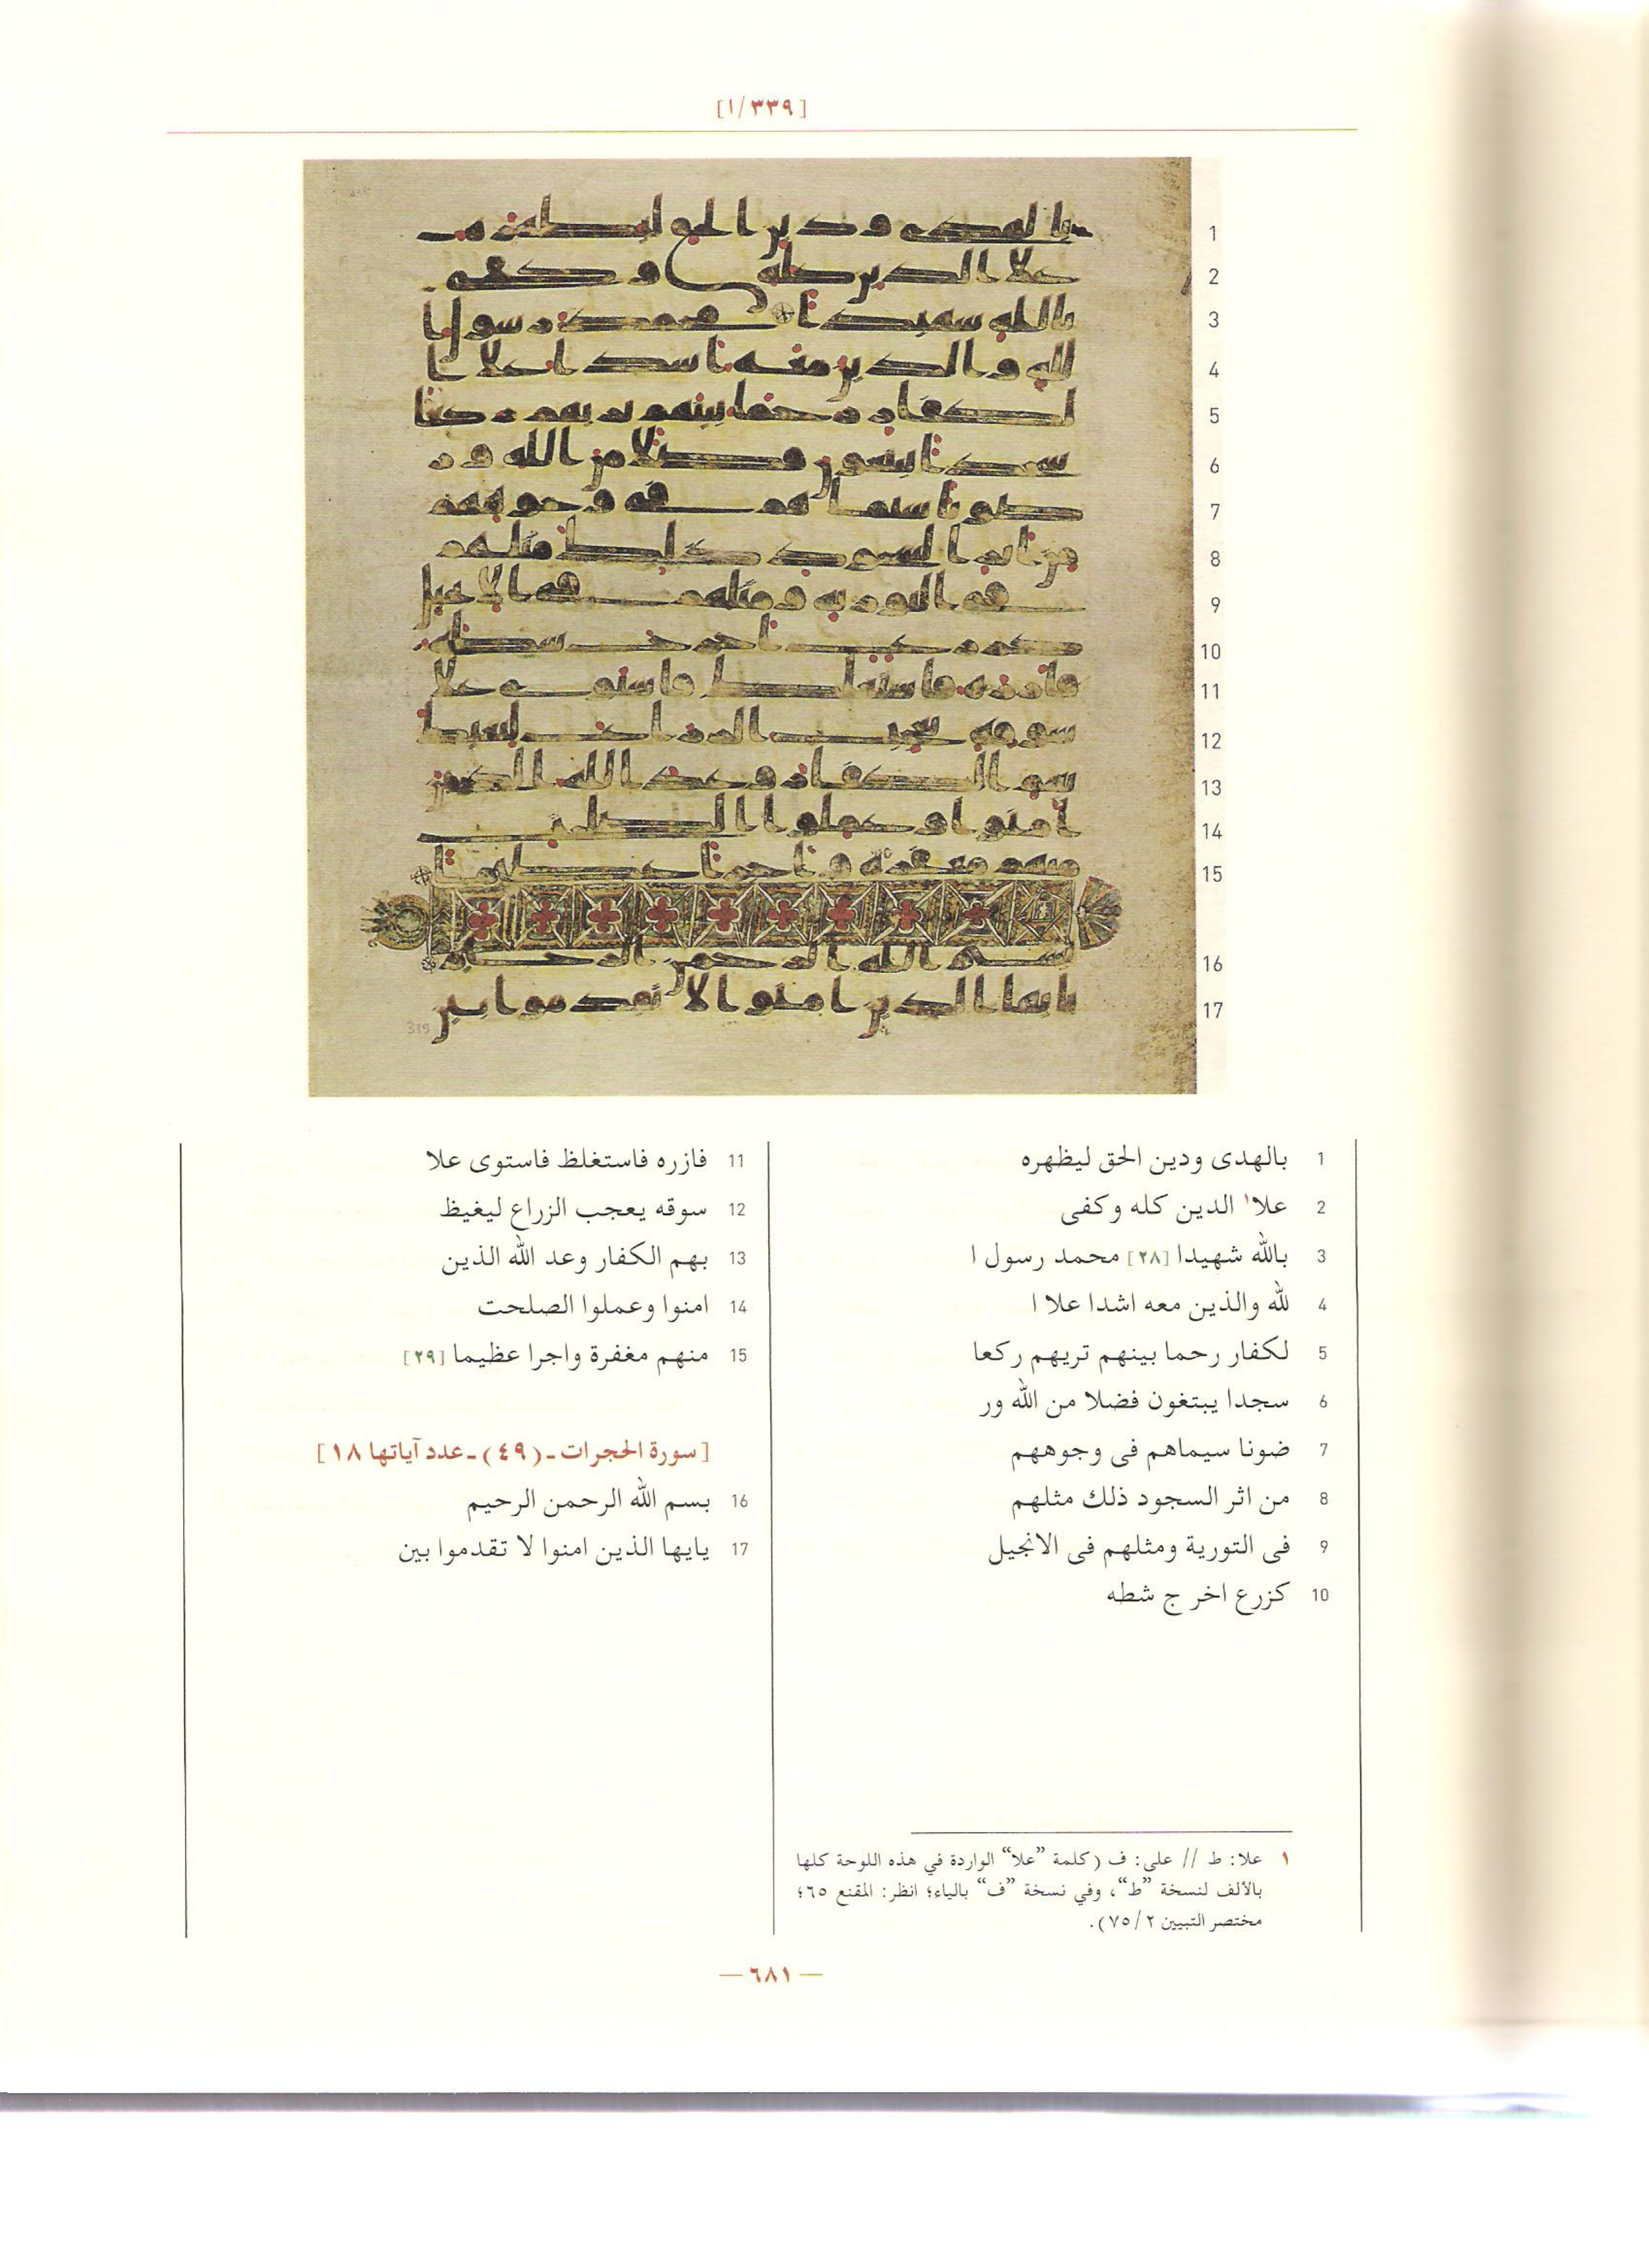 [١/٣٣٩]
1 بالهدى ودين الحق ليظهره
2 علا١ الدين كله وكفى
3 بالله شهيدا [٢٨] محمد رسول ا
4 لله والذين معه اشدا علا ا
5 لكفار رحما بينهم تريهم ركعا
6 سجدا يبتغون فضلا من الله ور
7 ضونا سيماهم فى وجوههم
8 من اثر السجود ذلك مثلهم
9 فى التورية ومثلهم فى الانجيل
10 كزرع اخر ج شطه
11 فازره فاستغلظ فاستوى علا
12 سوقه يعجب الزراع ليغيظ
13 بهم الكفار وعد الله الذين
14 امنوا وعملوا الصلحت
15 منهم مغفرة واجرا عظيما [٢٩]
[سورة الحجرات ـ (٤٩) ـ عدد آياتها ١٨]
16 بسم الله الرحمن الرحيم
17 يايها الذين امنوا لا تقدموا بين
١ علا: ط // على: ف (كلمة ”علا“ الواردة في هذه اللوحة كلها
بالألف لنسخة ”ط“، وفي نسخة ”ف“ بالياء؛ انظر: المقنع ٦٥؛
مختصر التبيين ٢/٧٥).
— ٦٨١ —